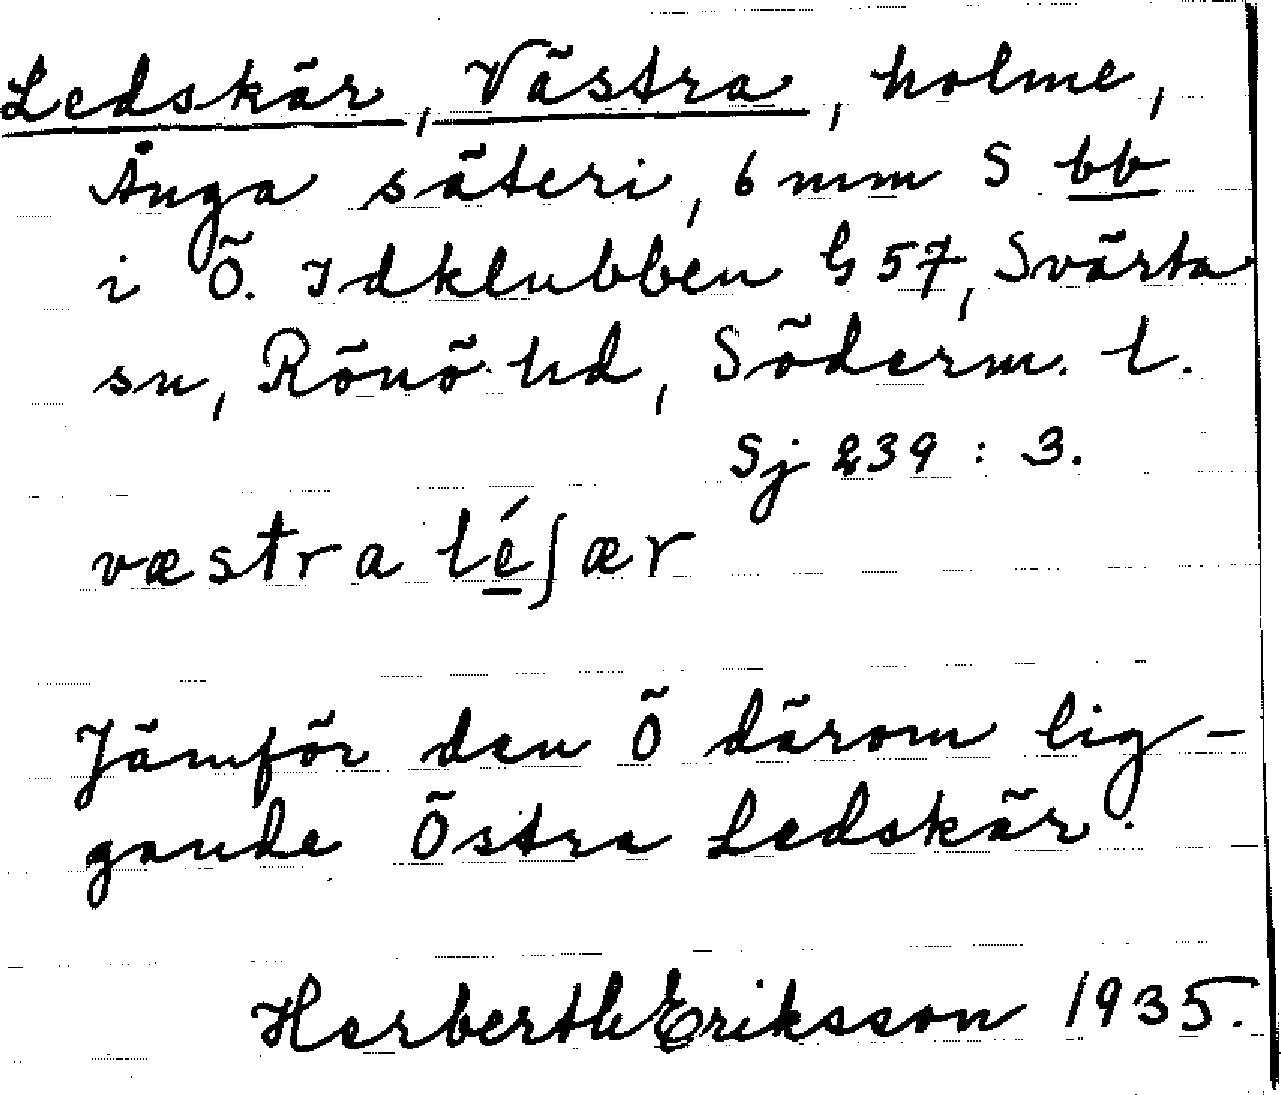 Ledskär, Västra, holme,
Ånga säteri, 6 mm S bb
i Ö. Idklubben G 57, Svärta
sn, Rönö hd, Söderm. l.
Sj 239 : 3.
væstra léʃær
Jämför den Ö därom lig-
gande Östra Ledskär.
Herberth Eriksson 1935.